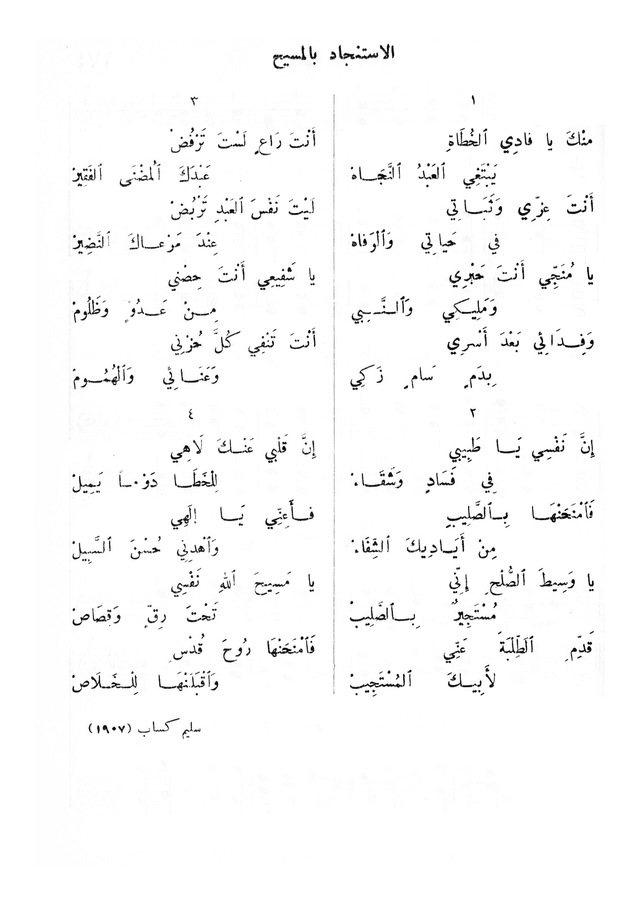 الاستنجاد بالمسيح
١
مِنْكَ يا فادِي ٱلخُطَاةِ
يَبْتَغِي ٱلعَبْدُ ٱلنَّجَاه
أَنْتَ عِزِّي وَثَبَاتِي
فِي حَيَاتِي وَٱلوَفَاه
يا مُنَجِّي أَنْتَ حَبْرِي
وَمَلِيكِي وَٱلنَّبِي
وَفِدَائِي بَعْدَ أَسْرِي
بِدَمٍ سَامٍ زَكِي
٢
إِنَّ نَفْسِي يَا طَبِيبِي
فِي فَسَادٍ وَشَقَاء
فَٱمْنَحَنْهَا بِٱلصَّلِيبِ
مِنْ أَيَادِيكَ ٱلشِّفَاء
يا وَسِيطَ ٱلصُّلْحِ إِنِّي
مُسْتَجِيرٌ بِٱلصَّلِيبْ
قَدِّمِ ٱلطِّلْبَةَ عَنِّي
لأَبِيكَ ٱلمُسْتَجِيبْ
٣
أَنْتَ رَاعٍ لَسْتَ تَرْفُضْ
عَبْدَكَ ٱلْمُضْنَى ٱلفَقِيرْ
لَيْتَ نَفْسَ ٱلعَبْدِ تَرْبُضْ
عِنْدَ مَرْعَاكَ ٱلنَّضِيرْ
يا شَفِيعِي أَنْتَ حِصْنِي
مِنْ عَدُوٍّ وَظَلُومْ
أَنْتَ تَنْفِي كُلَّ حُزْنِي
وَعَنَائِي وَٱلْهُمُومْ
٤
إِنَّ قَلْبِي عَنْكَ لَاهِي
لِلْخَطَا دَوْماً يَمِيلْ
فَأَعِنِّي يَا إِلَهِي
وَٱهْدِنِي حُسْنَ ٱلسَّبِيلْ
يا مَسِيحَ ٱللهِ نَفْسِي
تَحْتَ رِقٍّ وَقِصَاصْ
فَٱمْنَحَنْهَا رُوحَ قُدْسٍ
وَٱقْبَلَنْهَا لِلْخَلَاصْ
سليم كساب (١٩٠٧)